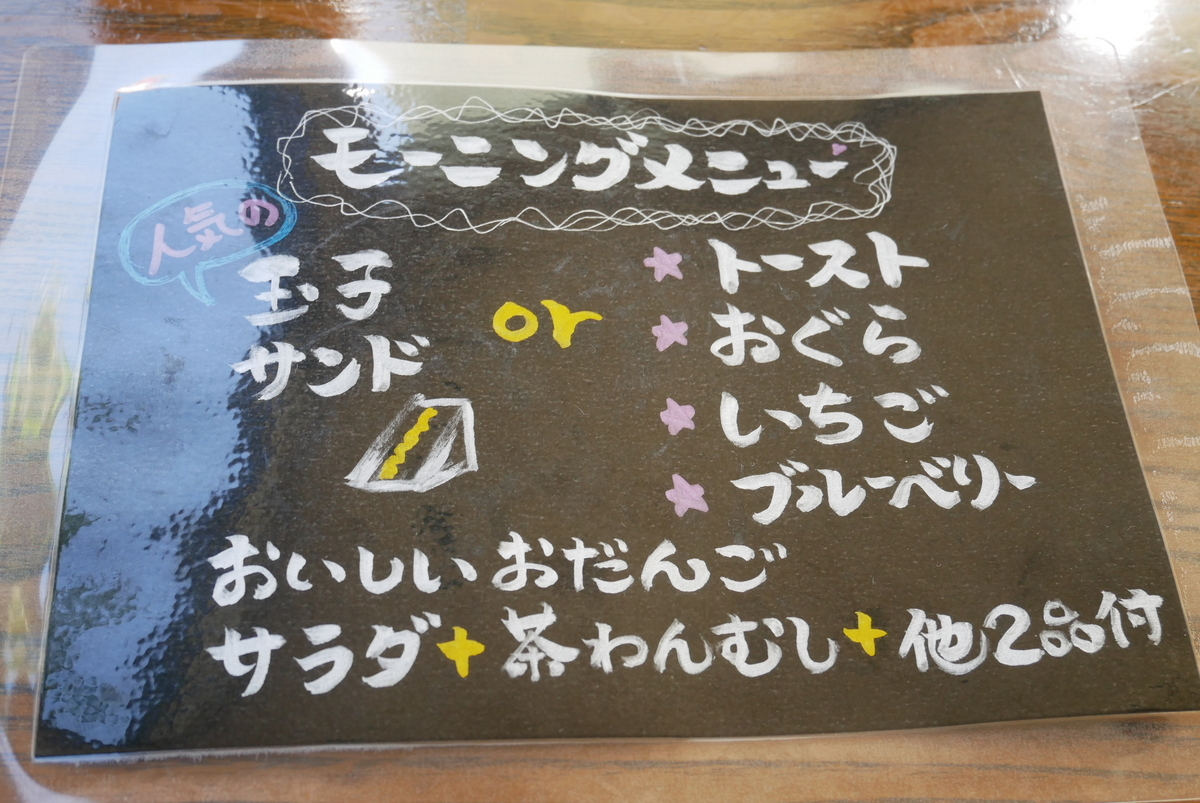 モーニングメニュー
人気の
玉子
サンド
or
トースト
おぐら
いちご
ブルーベリー
おいしいおだんご
サラダ+茶わんむし+他2品付